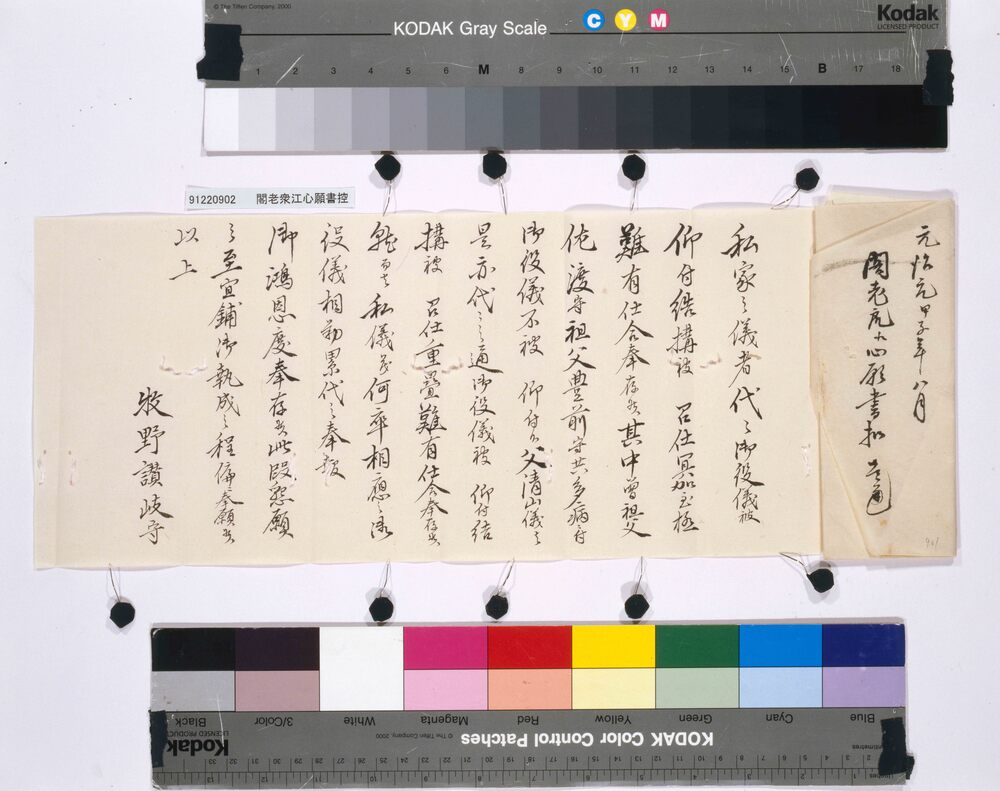 © The Tiffen Company, 2000
KODAK Gray Scale
C Y M
Kodak
LICENSED PRODUCT
1 2 3 4 5 6 M 8 9 10 11 12 13 14 15 B 17 18
91220902 閣老衆江心願書控
元治元甲子年八月
閣老衆江心願書扣 壱通
私家之儀者代々御役儀被
仰付結構被 召仕冥加至極
難有仕合奉存候其中曽祖父
佐渡守祖父豊前守共多病ニ付
御役儀不被 仰付候父清山儀者
是亦代々之通御役儀被 仰付結
構被 召仕重畳難有仕合奉存候
就而者私儀茂何卒相應之御
役儀相勤累代之奉報
御鴻恩度奉存候此段懇願
之至宜鋪御執成之程偏奉願候
以上
牧野讃岐守
KODAK Color Control Patches
© The Tiffen Company, 2000
Kodak
LICENSED PRODUCT
Black 3/Color White Magenta Red Yellow Green Cyan Blue